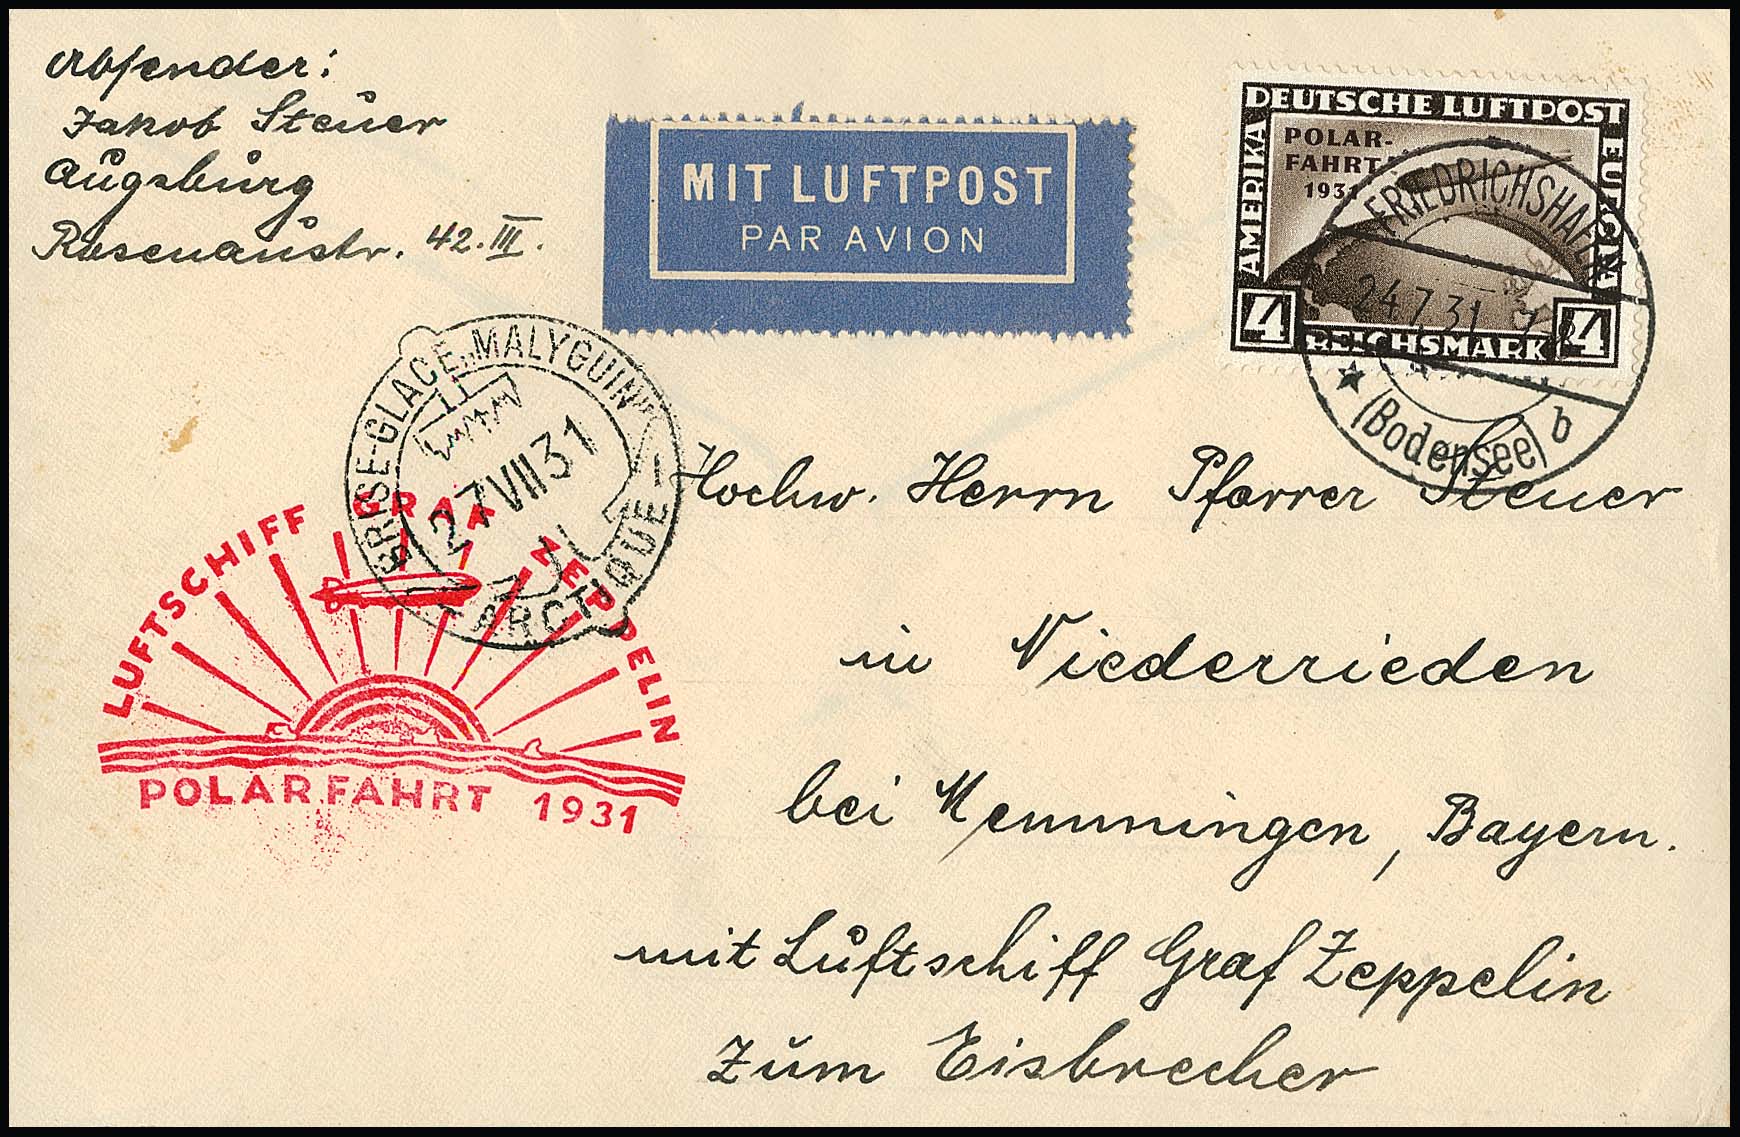 Absender:
Jakob Steuer
Augsburg
Rosenaustr. 42.III.
MIT LUFTPOST
PAR AVION
DEUTSCHE LUFTPOST
AMERIKA
EUROPA
POLAR-
FAHRT
1931
4 REICHSMARK 4
FRIEDRICHSHAFEN
24.7.31.
(Bodensee) b
BRISE-GLACE "MALYGUIN"
27 VII 31
ARCTIQUE
LUFTSCHIFF GRAF ZEPPELIN
POLARFAHRT 1931
Hochw. Herrn Pfarrer Steuer
in Niederrieden
bei Memmingen, Bayern.
mit Luftschiff Graf Zeppelin
zum Eisbrecher